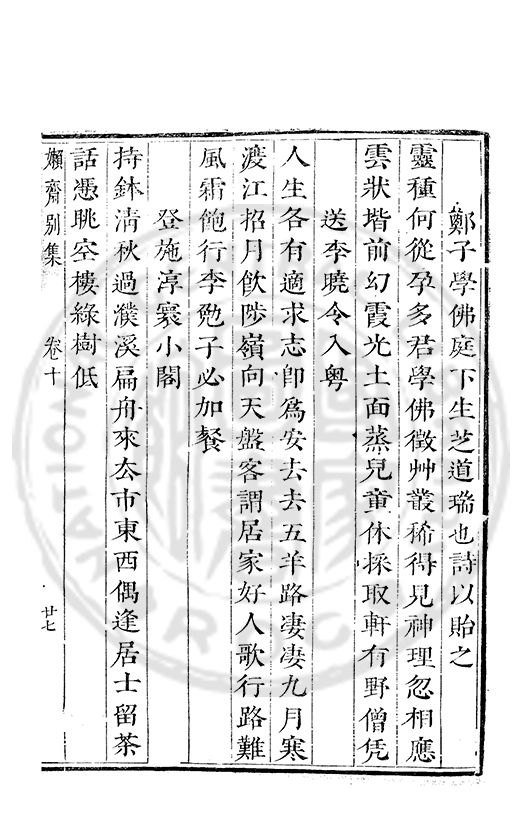 鄭子學佛庭下生芝道瑞也詩以貽之
靈種何從孕多君學佛徵艸叢稀得見神理忽相應
雲狀堦前幻霞光土面蒸兒童休採取軒有野僧凭
送李曉令入粤
人生各有適求志卽爲安去去五羊路凄凄九月寒
渡江招月飲陟嶺向天盤客謂居家好人歌行路難
風霜飽行李勉子必加餐
登施淳褱小閣
持鉢淸秋過濮溪扁舟來厺市東西偶逢居士留茶
話憑眺空樓綠樹低
嬾齋別集
卷十
廿七